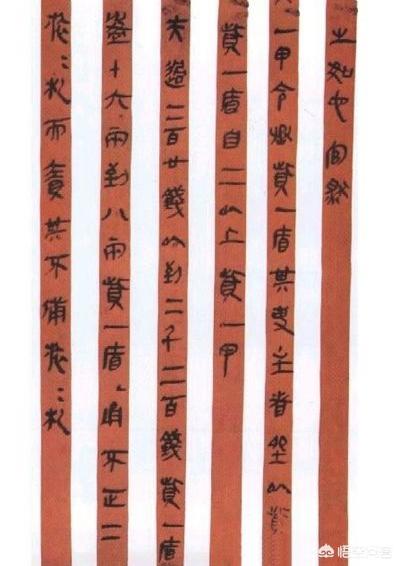 之如它官然
一甲令丞貲一盾其吏主者坐以貲
貲一盾自二以上貲一甲
夫過二百廿錢以到二千二百錢貲一盾
盈十六兩到八兩貲一盾甬不正二
旅=札而責其不備旅=札
悟空问答